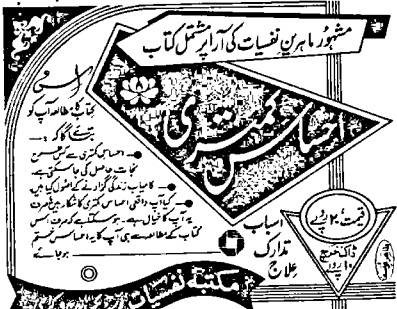 مشہور ماہرین نفسیات کی آرا پر مشتمل کتاب
احساس کمتری
اس
کتاب کا مطالعہ آپ کو
بتائے گا کہ :-
احساس کمتری سے کیسے
نجات حاصل کی جا سکتی ہے۔
کامیاب زندگی گزارنے کے اصول کیا ہیں۔
کیا آپ واقعی احساس کمتری کا شکار ہیں یا صرف
یہ آپ کا خیال ہے۔ ہو سکتا ہے کہ صرف اس
کتاب کے مطالعہ سے ہی آپ کا یہ احساس ختم
ہو جائے
اسباب
تدارک
علاج
قیمت: ۲۰ روپے
ڈاک خرچ
۱۰ روپے
مکتبہ نفسیات